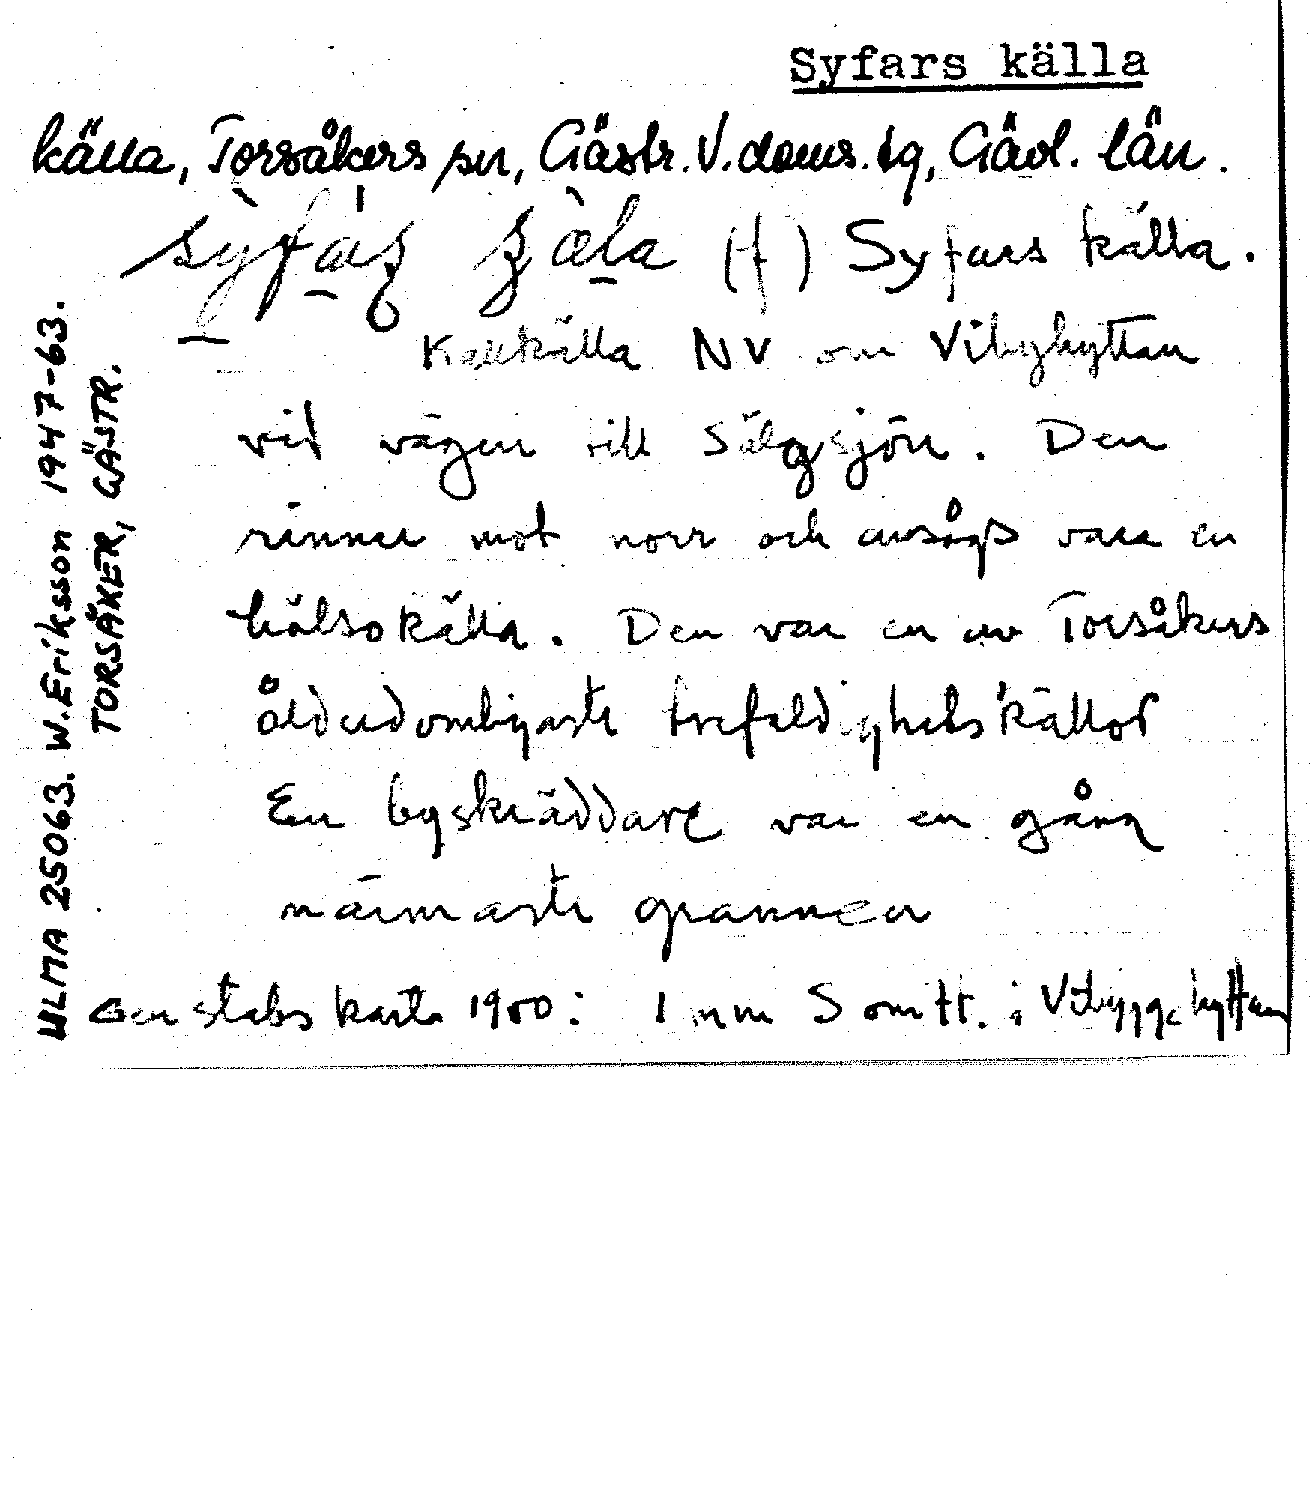 Syfars källa
källa, Torsåkers sn, Gästr. V. doms. tg, Gävl. län.
(f) Syfars källa.
Kallkälla NV om Vibyhyttan
vid vägen till Sälgsjön. Den
rinner mot norr och ansågs vara en
hälsokälla. Den var en av Torsåkers
ålderdomligaste trefaldighetskällor
En byskräddare var en gång
närmaste grannen
Genstabskarta 1900: 1 mm S om tt. i Vibyggehyttan
ULMA 25063. W. Eriksson 1947-63.
TORSÅKER, GÄSTR.